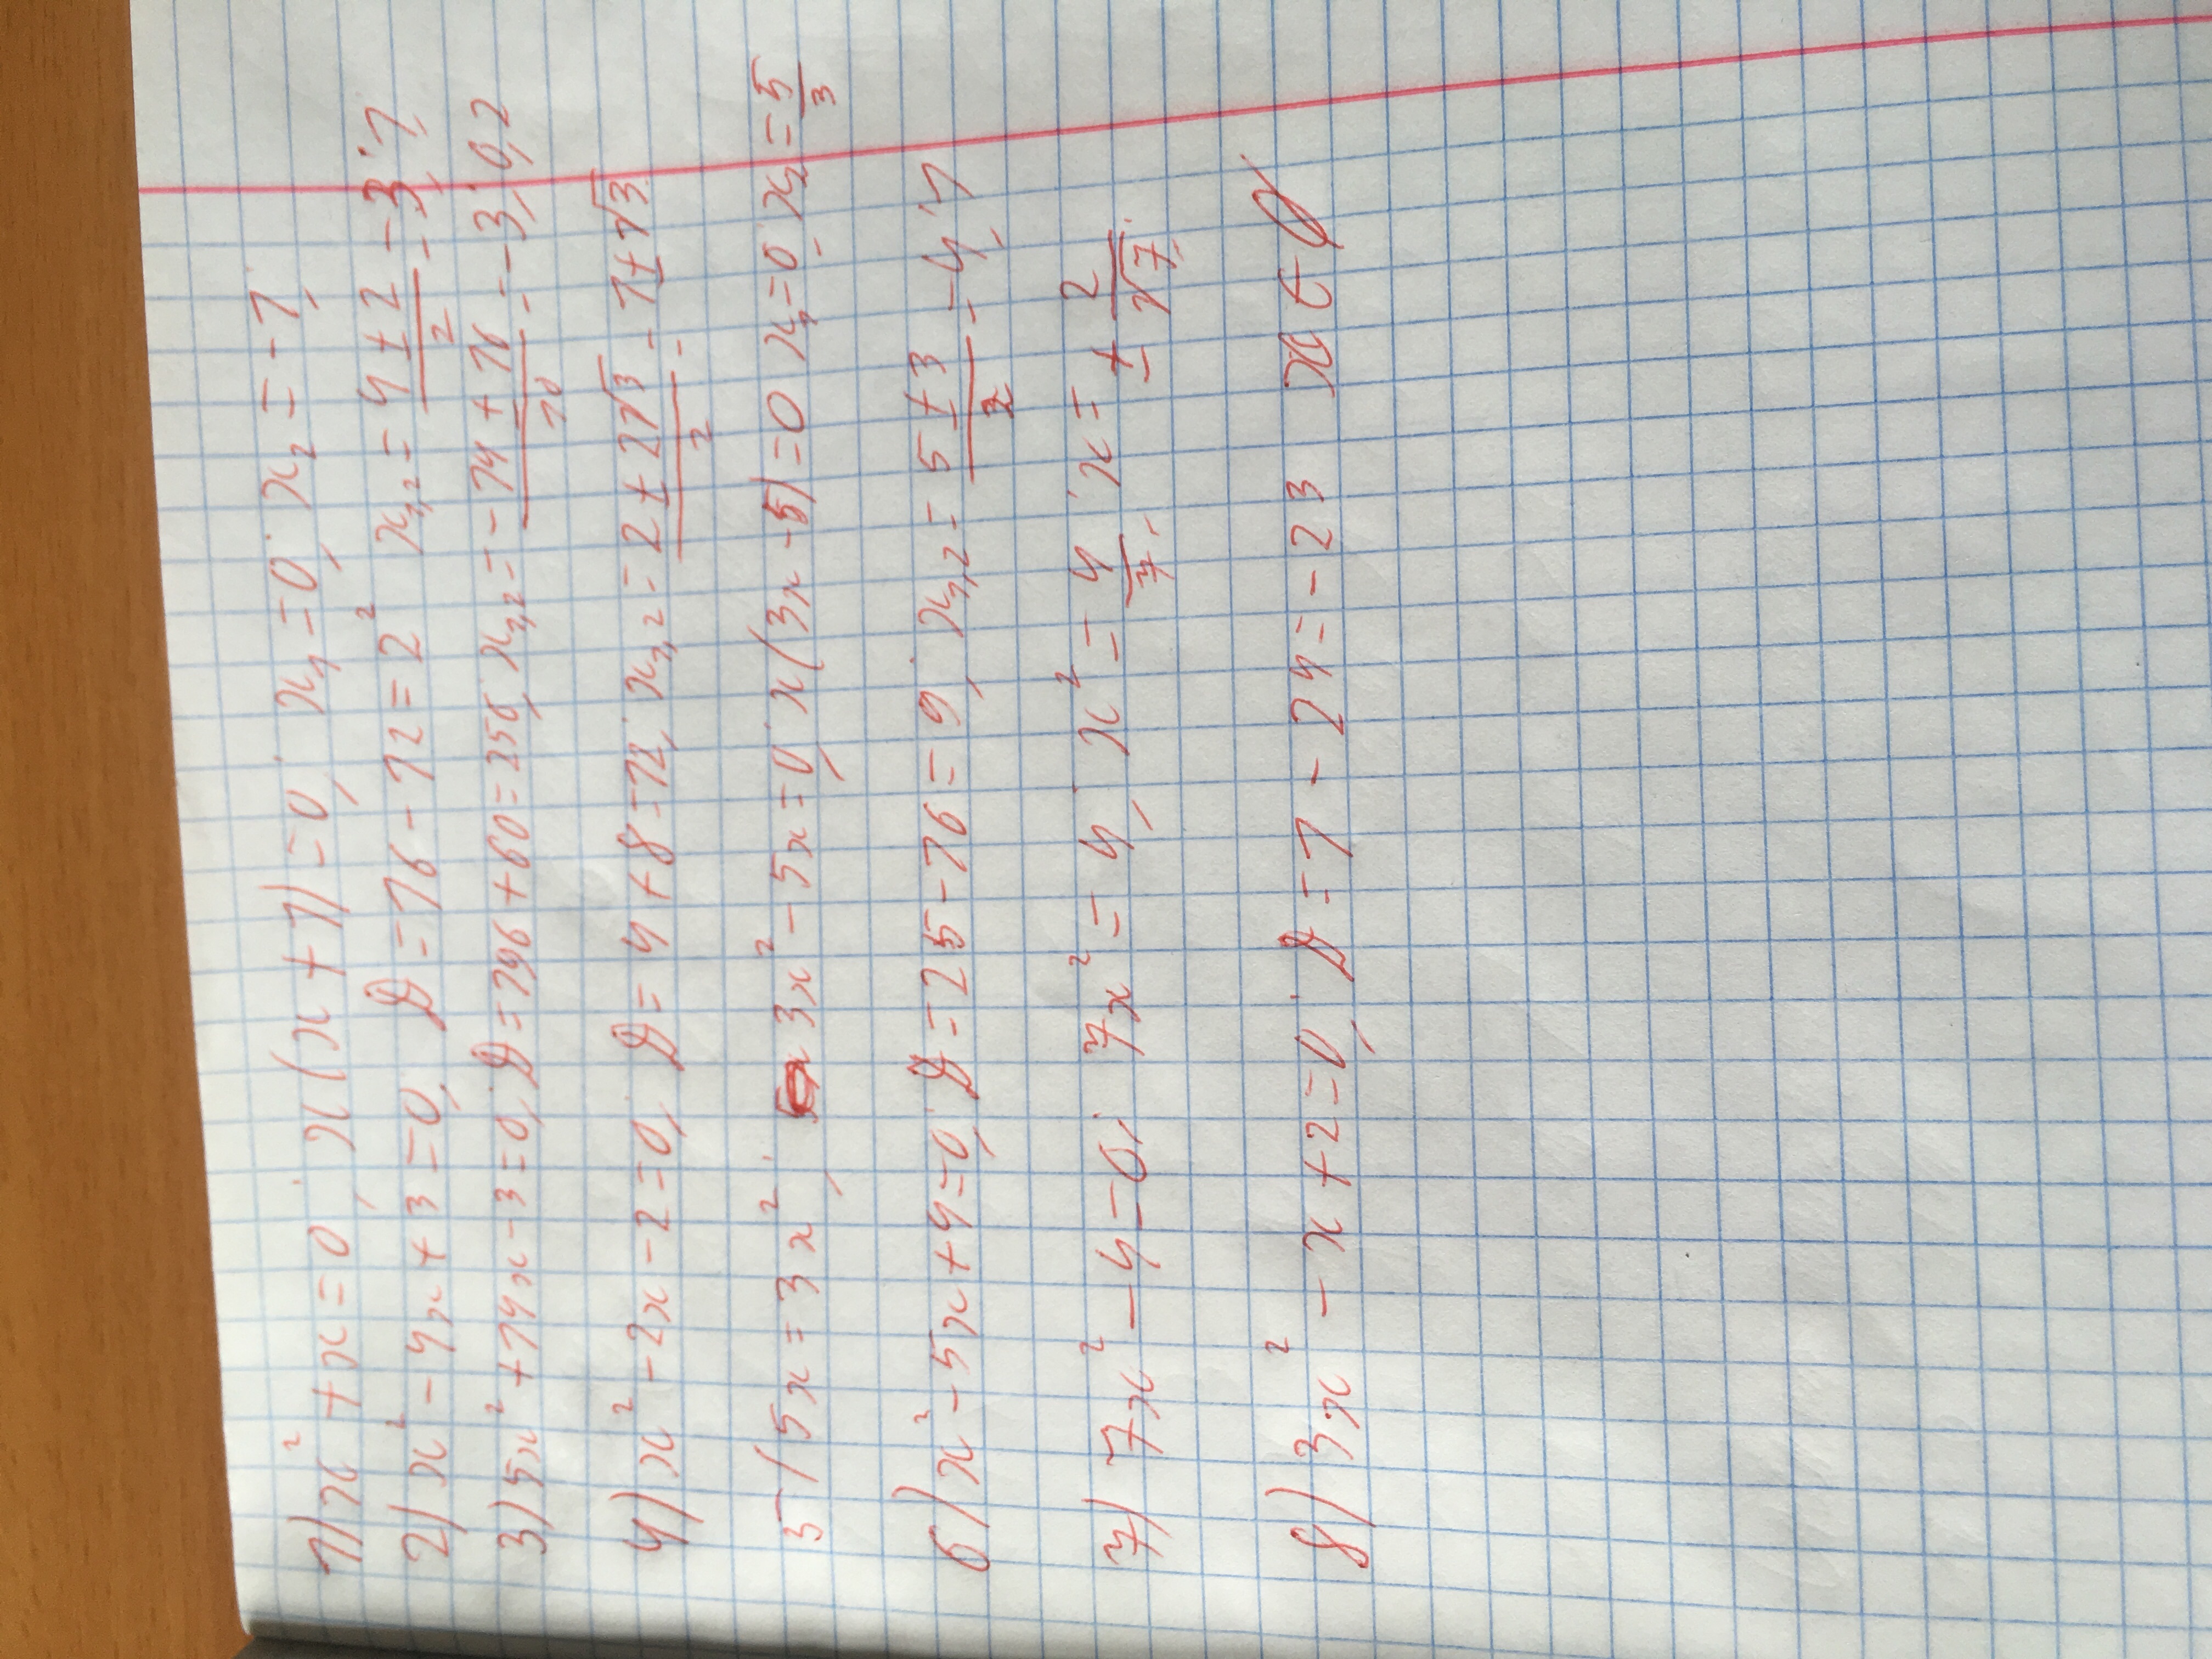 1) x² + x = 0; x(x+1) = 0; x₁ = 0; x₂ = -1;
2) x² - 4x + 3 = 0; D = 16 - 12 = 2² x₁,₂ = (4 ± 2)/2 = 3; 1;
3) 5x² + 14x - 3 = 0; D = 196 + 60 = 256; x₁,₂ = (-14 ± 16)/10 = -3; 0,2
4) x² - 2x - 2 = 0; D = 4 + 8 = 12; x₁,₂ = (2 ± 2√3)/2 = 1 ± √3
5) 5x = 3x²; 3x² - 5x = 0; x(3x - 5) = 0 x₁ = 0; x₂ = 5/3
6) x² - 5x + 4 = 0; D = 25 - 16 = 9; x₁,₂ = (5 ± 3)/2 = 4; 1
7) 7x² - 4 = 0; 7x² = 4; x² = 4/7; x = ± 2/√7;
8) 3x² - x + 2 = 0; D = 1 - 24 = -23 x ∈ Ø